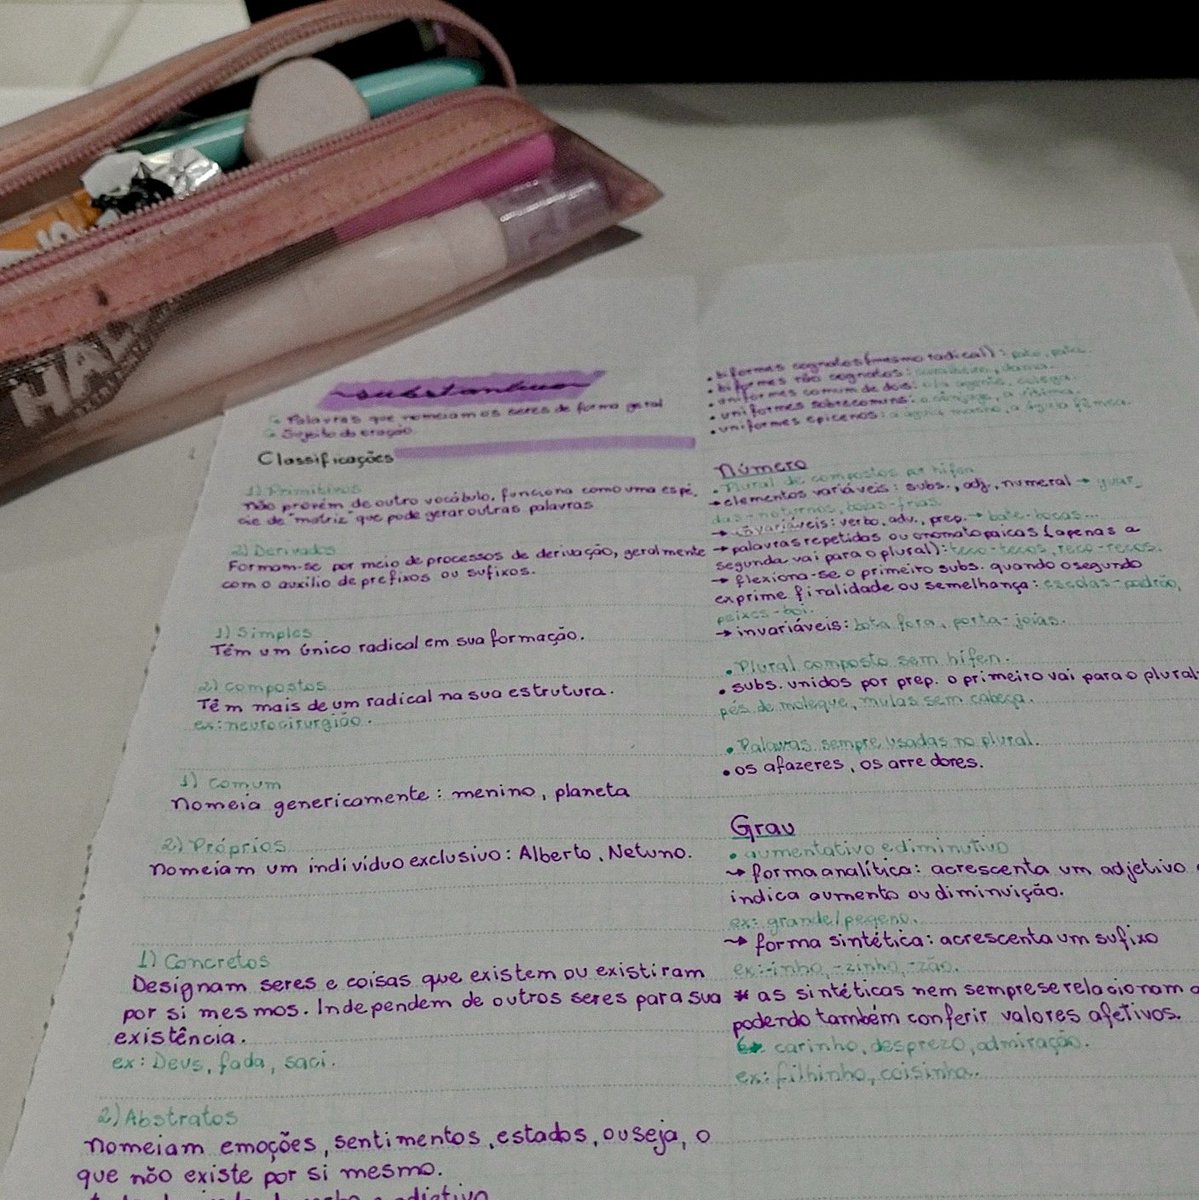 HAL
~substantivo~
Palavras que nomeiam os seres de forma geral
Sujeito da oração.
Classificações
1) Primitivos
não provém de outro vocábulo, funciona como uma espé-
cie de "matriz" que pode gerar outras palavras
2) Derivados
Formam-se por meio de processos de derivação, geralmente
com o auxílio de prefixos ou sufixos.
1) Simples
Têm um único radical em sua formação.
2) compostos
Têm mais de um radical na sua estrutura.
ex: neurocirurgião.
1) comum
nomeia genericamente: menino, planeta
2) Próprios
nomeiam um indivíduo exclusivo: Alberto, Netuno.
1) Concretos
Designam seres e coisas que existem ou existiram
por si mesmos. Independem de outros seres para sua
existência.
ex: Deus, fada, saci.
2) Abstratos
nomeiam emoções, sentimentos, estados, ou seja, o
que não existe por si mesmo.
• biformes cognatos (mesmo radical): pato, pata.
• biformes não cognatos: cavalheiro, dama.
• uniformes comum de dois: o/a agente, colega.
• uniformes sobrecomuns: o cônjuge, a vítima.
• uniformes epicenos: a águia macho, a águia fêmea.
número
• Plural de compostos por hífen
→ elementos variáveis: subs., adj, numeral → guar_
das-noturnos, boias-frias.
→ invariáveis: verbo, adv., prep. → bate-bocas...
→ palavras repetidas ou onomatopaicas (apenas a
segunda vai para o plural): teco-tecos, reco-recos.
→ flexiona-se o primeiro subs. quando o segundo
exprime finalidade ou semelhança: escolas-padrão,
peixes-boi.
→ invariáveis: bota fora, porta-joias.
• Plural composto sem hífen.
• subs. unidos por prep. o primeiro vai para o plural
pés de moleque, mulas sem cabeça.
• Palavras sempre usadas no plural.
• os afazeres, os arredores.
Grau
• aumentativo e diminutivo
→ forma analítica: acrescenta um adjetivo
indica aumento ou diminuição.
ex: grande/pegeno.
→ forma sintética: acrescenta um sufixo
ex: -inho, -zinho, -zão.
* as sintéticas nem sempre se relacionam a
podendo também conferir valores afetivos.
↳ carinho, desprezo, admiração.
ex: filhinho, coisinha.